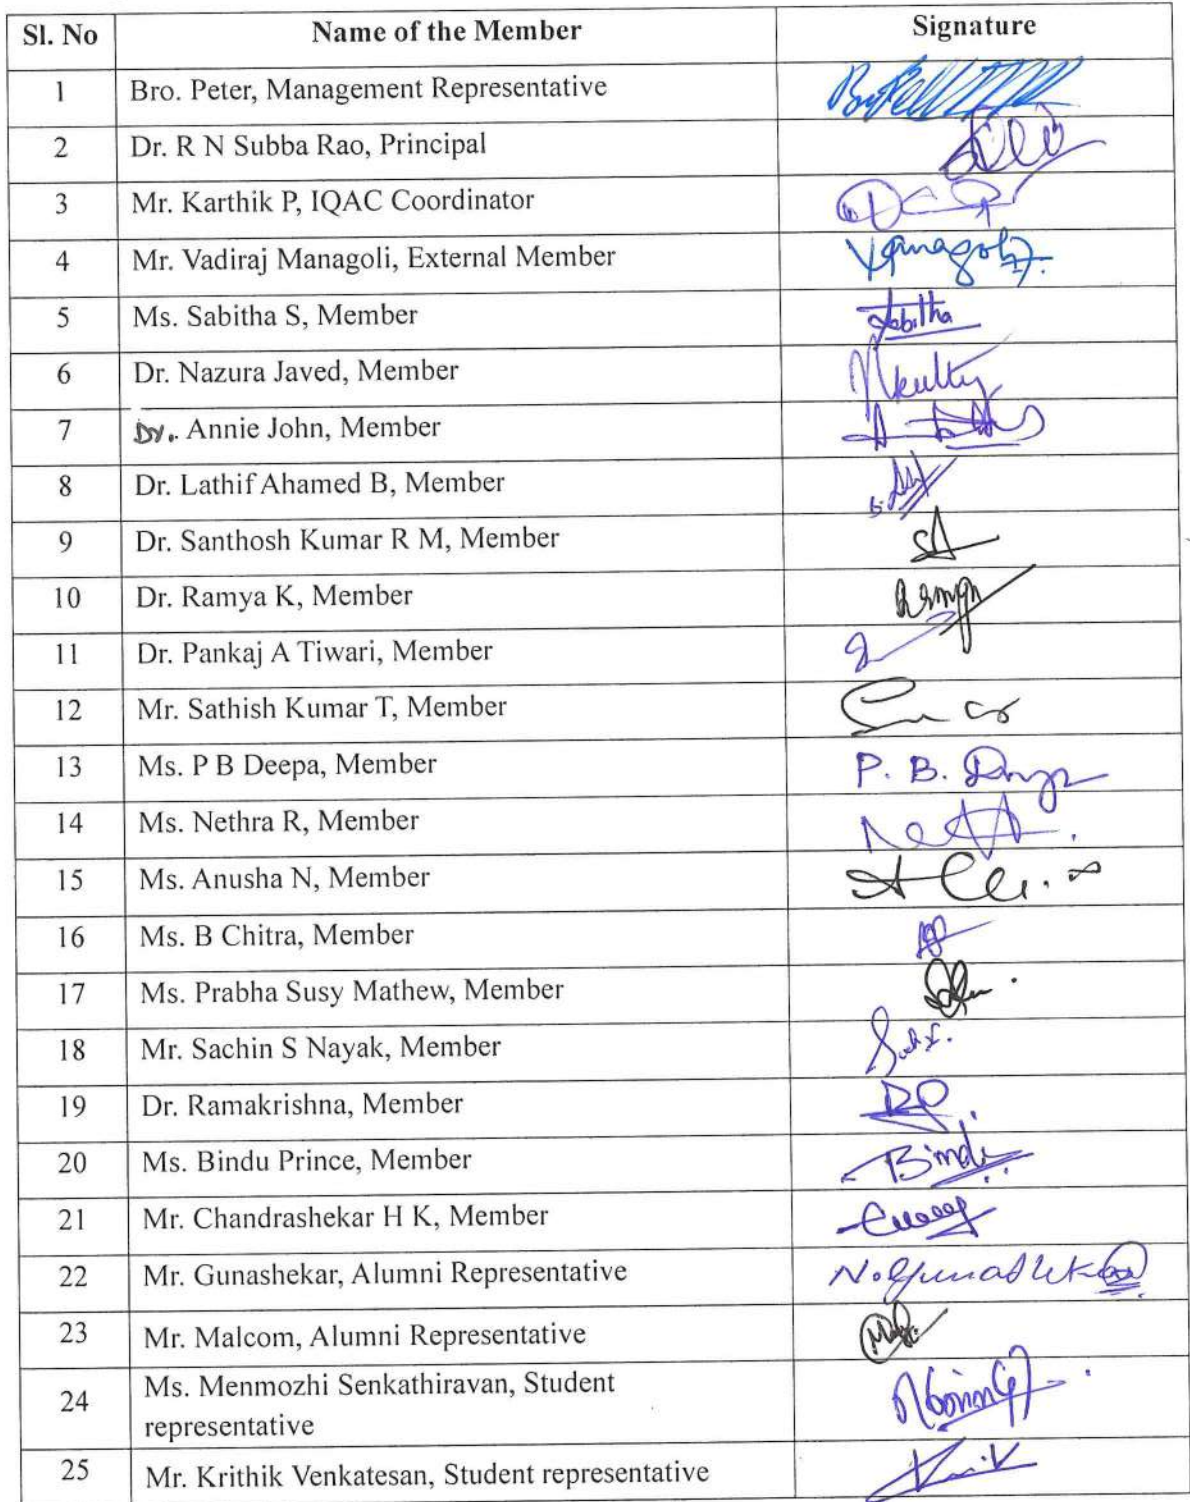 Sl. No Name of the Member Signature
1 Bro. Peter, Management Representative
2 Dr. R N Subba Rao, Principal
3 Mr. Karthik P, IQAC Coordinator
4 Mr. Vadiraj Managoli, External Member
5 Ms. Sabitha S, Member Sabitha
6 Dr. Nazura Javed, Member
7 Dr. Annie John, Member
8 Dr. Lathif Ahamed B, Member
9 Dr. Santhosh Kumar R M, Member
10 Dr. Ramya K, Member
11 Dr. Pankaj A Tiwari, Member
12 Mr. Sathish Kumar T, Member
13 Ms. P B Deepa, Member P. B.
14 Ms. Nethra R, Member
15 Ms. Anusha N, Member
16 Ms. B Chitra, Member
17 Ms. Prabha Susy Mathew, Member
18 Mr. Sachin S Nayak, Member
19 Dr. Ramakrishna, Member
20 Ms. Bindu Prince, Member Bindu
21 Mr. Chandrashekar H K, Member
22 Mr. Gunashekar, Alumni Representative N. Gunashekar
23 Mr. Malcom, Alumni Representative
24 Ms. Menmozhi Senkathiravan, Student
representative
25 Mr. Krithik Venkatesan, Student representative